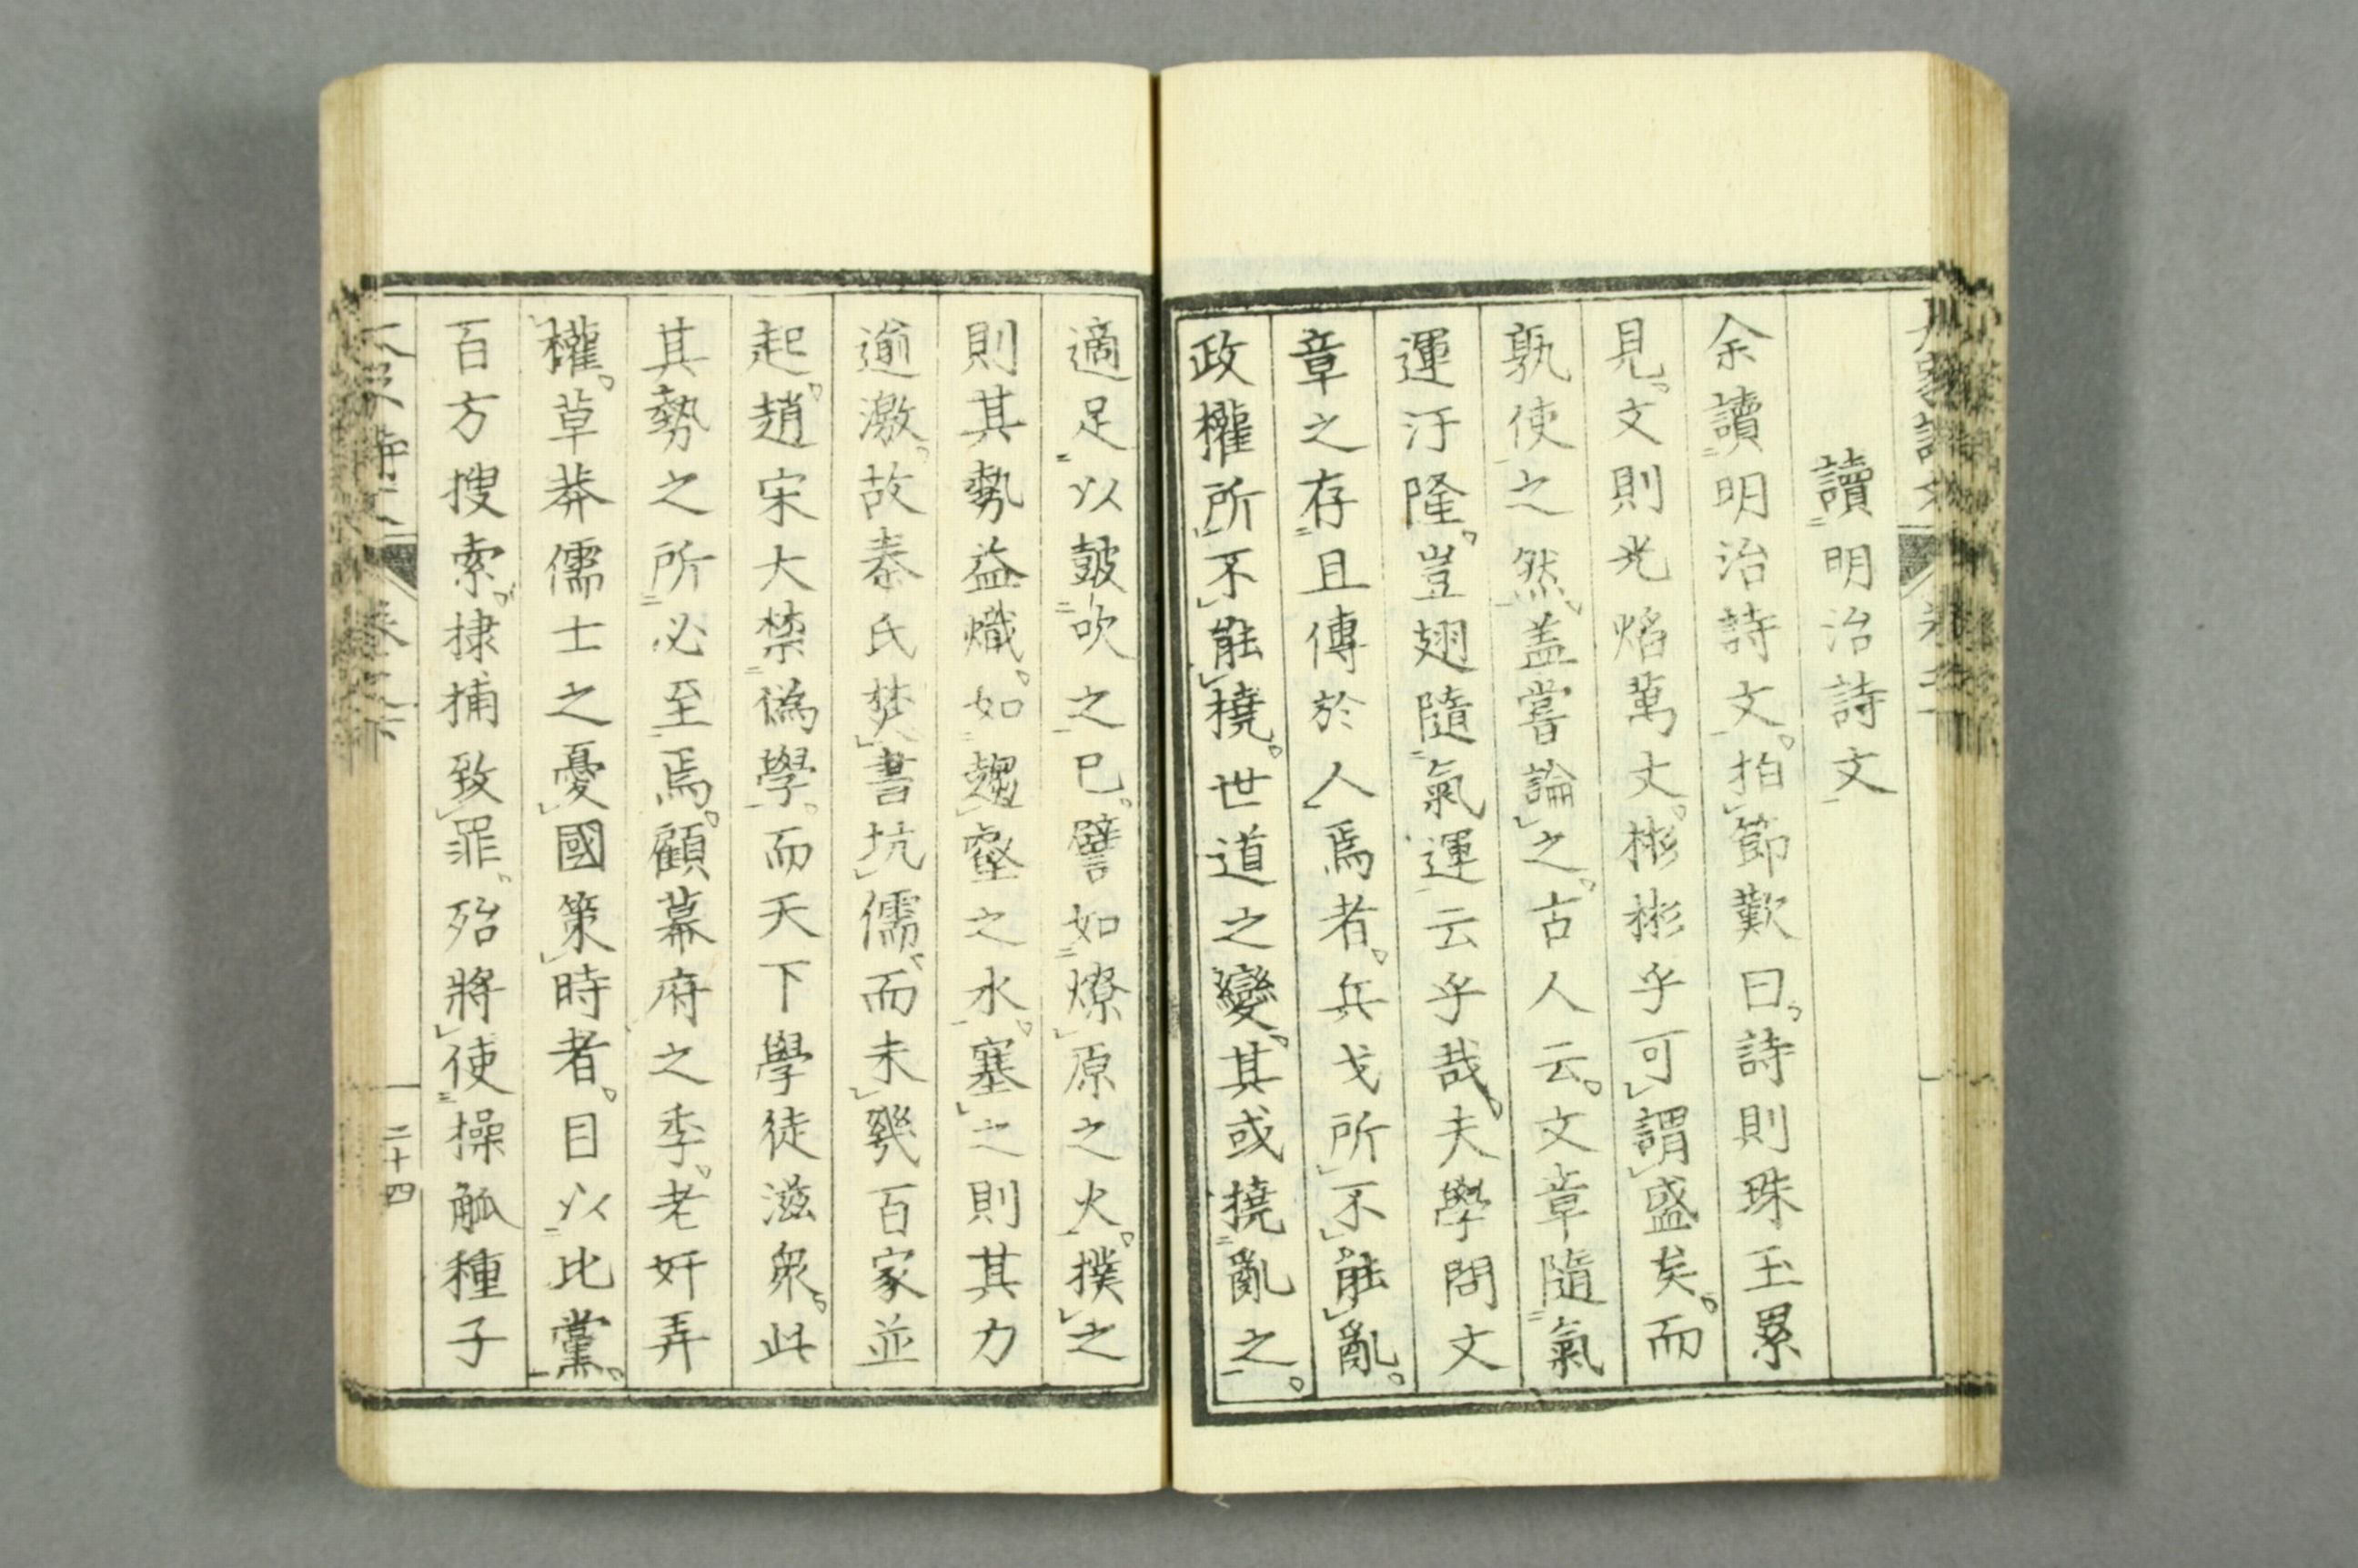 讀明治詩文
余讀明治詩文。拍節歎曰。詩則珠玉累
見。文則光焰萬丈。彬彬乎可謂盛矣。而
孰使之然。盖嘗論之。古人云。文章隨氣
運汙隆。豈翅隨氣運云乎哉。夫學問文
章之存且傳於人焉者。兵戈所不能亂。
政權所不能撓。世道之變。其或撓亂之。
適足以皷吹之已。譬如燎原之火。撲之
則其勢益熾。如趨壑之水。塞之則其力
逾激。故秦氏焚書坑儒。而未幾百家並
起。趙宋大禁僞學。而天下學徒滋衆。此
其勢之所必至焉。顧幕府之季。老奸弄
權。草莽儒士之憂國策時者。目以比黨。
百方搜索。捸捕致罪。殆將使操觚種子
二十四